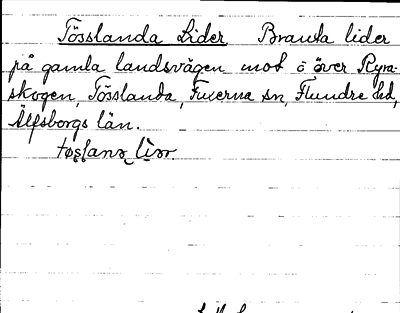 Tösslanda Lider Branta lider
på gamla landsvägen mot ö över Ryra-
skogen, Tösslanda, Fuxerna sn, Flundre hd,
Älfsborgs län.